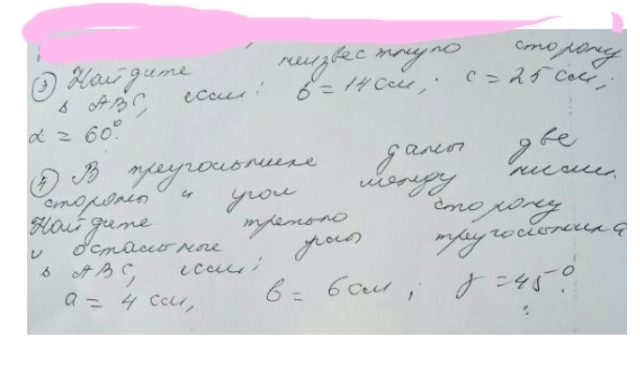 ③ Найдите неизвестную сторону
Δ ABC, если: b = 14 см; c = 25 см;
α = 60°.
④ В треугольнике даны две
стороны и угол между ними.
Найдите третью сторону
и остальные углы треугольника
Δ ABC, если:
a = 4 см, b = 6 см; γ = 45°.